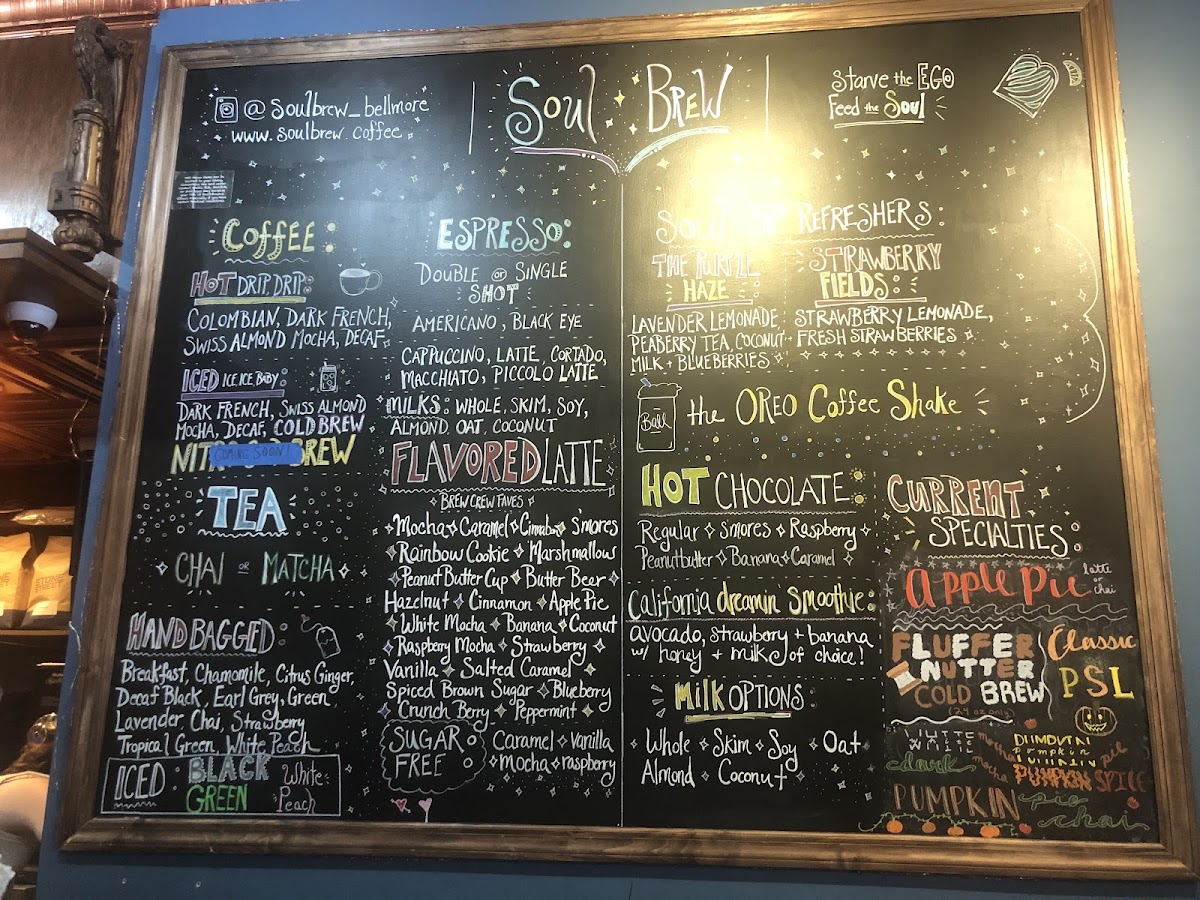 @soulbrew_bellmore
www.soulbrew.coffee
Soul Brew
Starve the EGO
Feed the Soul
Coffee:
HOT DRIP DRIP:
COLOMBIAN, DARK FRENCH,
SWISS ALMOND MOCHA, DECAF
ICED ICE ICE, BABY:
DARK FRENCH, SWISS ALMOND
MOCHA, DECAF, COLD BREW
BREW
COMING SOON!
TEA
CHAI OR MATCHA
HAND BAGGED:
Breakfast, Chamomile, Citrus Ginger,
Decaf Black, Earl Grey, Green
Lavender, Chai, Strawberry
Tropical Green, White Peach
ICED: BLACK
GREEN
White
Peach
ESPRESSO:
DOUBLE or SINGLE
SHOT
AMERICANO, BLACK EYE
CAPPUCCINO, LATTE, CORTADO,
MACCHIATO, PICCOLO LATTE
MILKS: WHOLE, SKIM, SOY,
ALMOND, OAT, COCONUT
FLAVORED LATTE
BREW CREW FAVES
Mocha Caramel Cinnabon Smores
Rainbow Cookie Marshmallow
Peanut Butter Cup Butter Beer
Hazelnut Cinnamon Apple Pie
White Mocha Banana Coconut
Raspberry Mocha Strawberry
Vanilla Salted Caramel
Spiced Brown Sugar Blueberry
Crunch Berry Peppermint
SUGAR
FREE
Caramel Vanilla
mocha raspberry
SOUL REFRESHERS:
THE PURPLE
HAZE:
LAVENDER LEMONADE
PEABERRY TEA, COCONUT
MILK + BLUEBERRIES
STRAWBERRY
FIELDS:
STRAWBERRY LEMONADE,
FRESH STRAWBERRIES
Ball
the OREO Coffee Shake
HOT CHOCOLATE
Regular Smores Raspberry
Peanutbutter Banana Caramel
California dreamin Smoothie:
avocado, strawberry + banana
w/ honey + milk of choice!
Milk OPTIONS:
Whole Skim Soy Oat
Almond Coconut
CURRENT
SPECIALTIES:
apple pie latte
or
chai
FLUFFER
NUTTER
COLD BREW
(24 oz only)
Classic
PSL
WHITE
dark
mocha
mocha
pumpkin
pie
PUMPKIN SPICE
PUMPKIN pie
chai